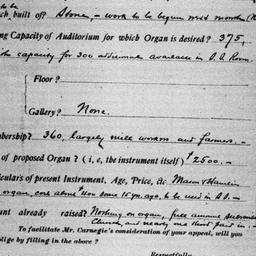 to be
ch built of? Stone, - work to be begun next month (
ng Capacity of Auditorium for which Organ is desired? 375,
capacity for 300 additional available in S.S. Room.
Floor?
Gallery? None.
bership? 360, largely mill workers and farmers. -
of proposed Organ? (i, e, the instrument itself) $2500. -
culars of present Instrument, Age, Price, &c Mason & Hamlin
organ, cost about $400 some 15 yrs. ago, to be used in S.S. -
unt already raised? Nothing on organ,
Church, and nearly one third paid in. -
To facilitate Mr. Carnegie's consideration of your appeal, will you
blige by filling in the above?
Respectfully